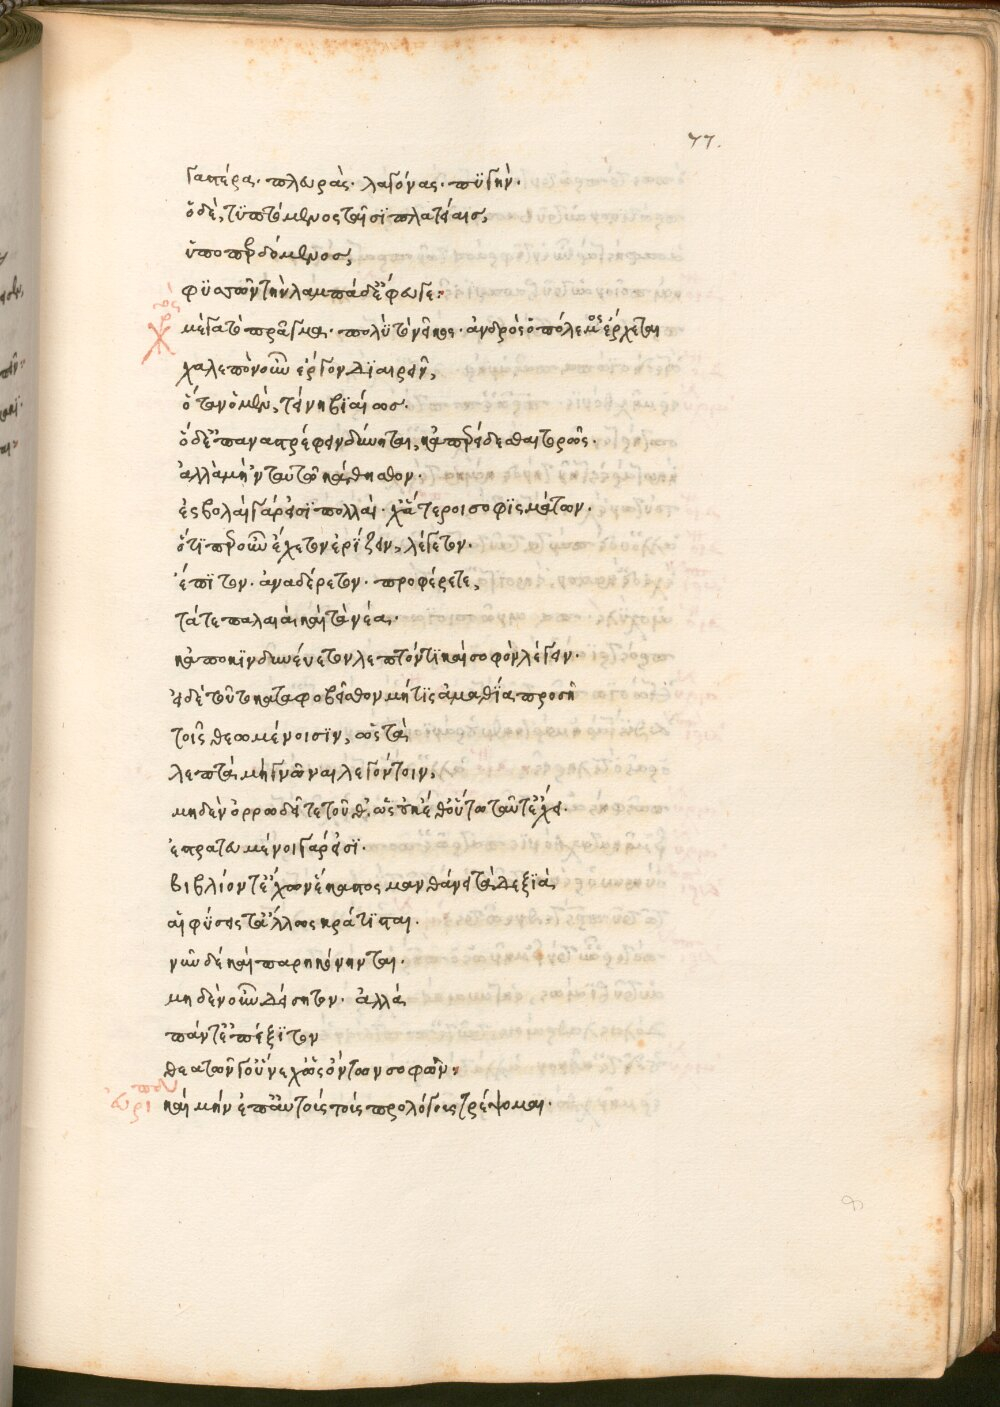 77.
γαστέρα· πλευρὰς· λαγόνας· πϋγὴν·
ὁ δὲ, τϋπτόμενος ταῖσϊ πλατείαις,
ὑποπερδόμενος,
φϋσῶν τὴν λαμπάδ' ἔφευγε:
χορός
μέγα τὸ πρᾶγμα· πολὺ τὸ νεῖκος· ἁνδρὸς ὁ πόλεμος ἔρχεται
χαλεπὸν οὖν ἔργον δϊαιρεῖν,
ὅταν ὁ μὲν, τείνη βϊαίως·
ὁ δ' ἐπαναστρέφειν δύνηται, κἀπερείδεσθαι τορῶς·
ἀλλὰ μὴ 'ν ταυτῶ κάθησθον·
ἐσβολαὶ γάρ εἰσϊ πολλαὶ· χἄτεροι σοφϊσμάτων·
ὅτϊ περ οὖν ἔχετον ἐρίζειν, λέγετον·
ἔπϊτον· ἀναδέρετον· προφέρετε,
τά τε παλαιὰ καὶ τὰ νέα·
κἀποκϊνδυνεύετον λεπτόν τϊ καὶ σοφὸν λέγειν·
εἰ δὲ τοῦτο καταφοβεῖσθον μή τϊς ἀμαθΐα προσῆ
τοῖς θεωμένοισϊν, ὡς τὰ
λεπτὰ μὴ γνῶναι λεγόντοιν,
μηδὲν ὀρρωδεῖτε τοῦθ· ὡς οὐκ έθ' οὕτω ταῦτ' ἔχει·
ἐστρατευμένοι γάρ εἰσϊ·
βιβλίον τ' ἔχων ἕκαστος μανθάνει τὰ δεξϊὰ
αἱ φύσεις τ' ἄλλως κράτϊσται·
νῦν δὲ καὶ παρηκόνηνται·
μηδὲν οὖν δείσητον· ἀλλὰ
πάντ' ἐπέξϊτον
θεατῶν γ' οὕνεχ' ὡς ὄντων σοφῶν:
εὐριπ καὶ μὴν ἐπ' αὐτοὺς τοὺς προλόγους τρέψομαι·